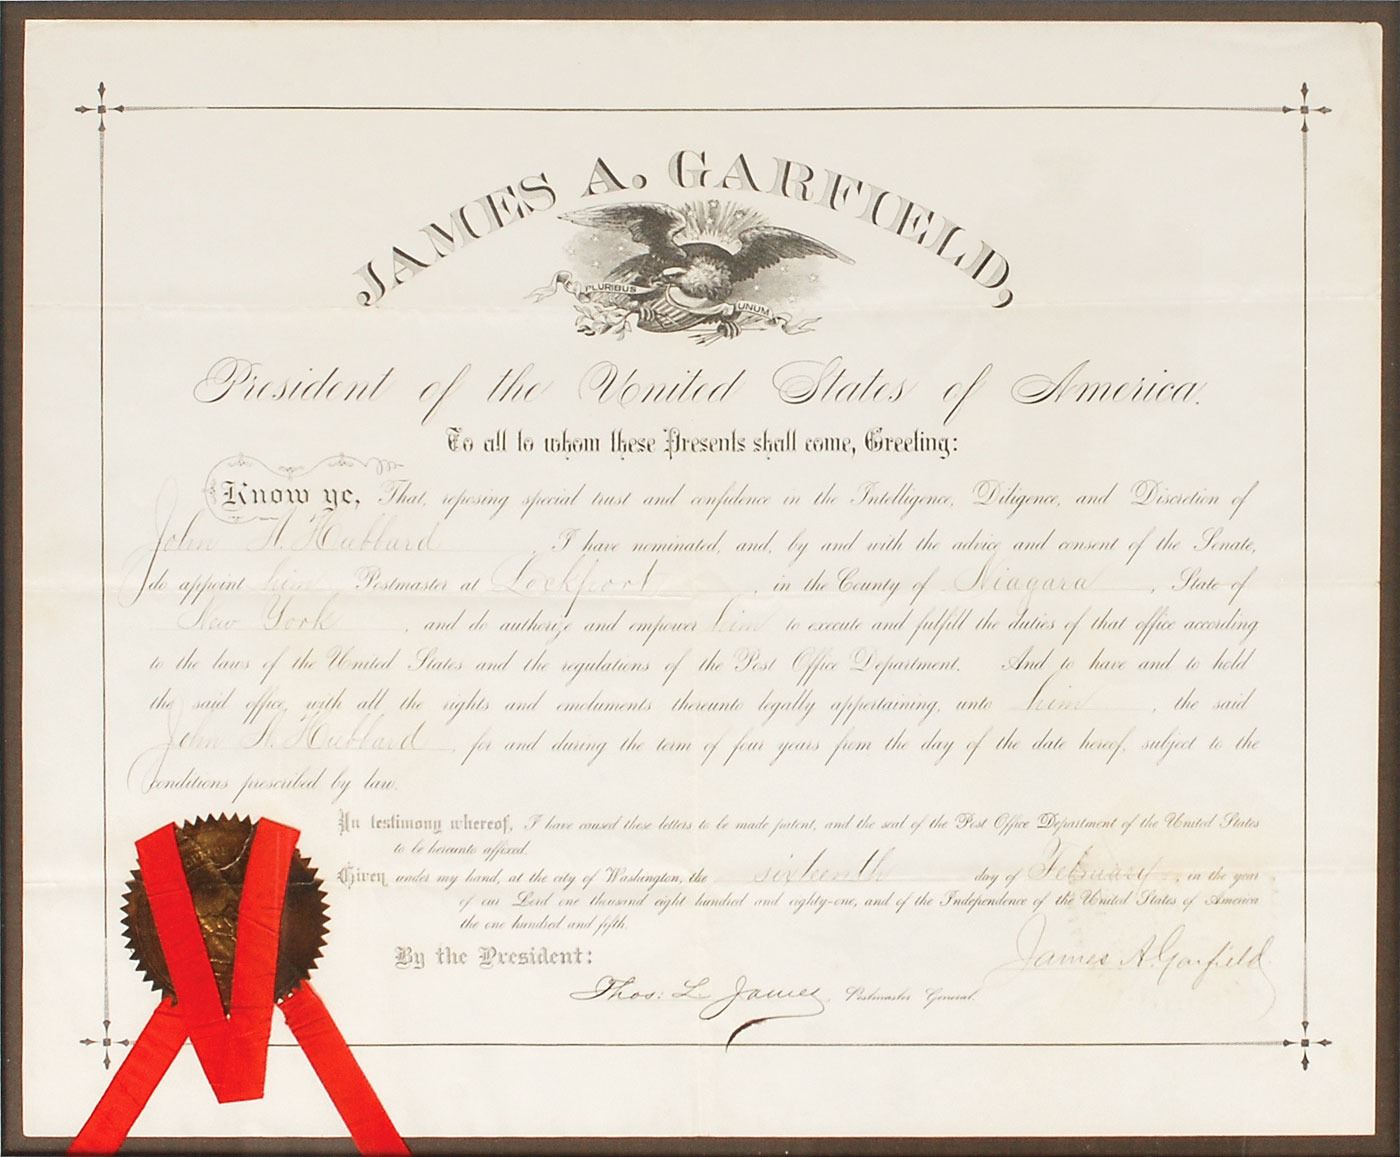 JAMES A. GARFIELD,
PLURIBUS UNUM
President of the United States of America.
To all to whom these Presents shall come, Greeting:
Know ye, That, reposing special trust and confidence in the Intelligence, Diligence, and Discretion of
John H. Hubbard, I have nominated, and, by and with the advice and consent of the Senate,
do appoint him Postmaster at Lockport, in the County of Niagara, State of
New York, and do authorize and empower him to execute and fulfill the duties of that office according
to the laws of the United States and the regulations of the Post Office Department. And to have and to hold
the said office, with all the rights and emoluments thereunto legally appertaining, unto him, the said
John H. Hubbard, for and during the term of four years from the day of the date hereof, subject to the
conditions prescribed by law.
In testimony whereof, I have caused these letters to be made patent, and the seal of the Post Office Department of the United States
to be hereunto affixed.
Given under my hand, at the city of Washington, the sixteenth day of February, in the year
of our Lord one thousand eight hundred and eighty-one, and of the Independence of the United States of America
the one hundred and fifth.
By the President:
James A. Garfield
Thos: L James, Postmaster General.